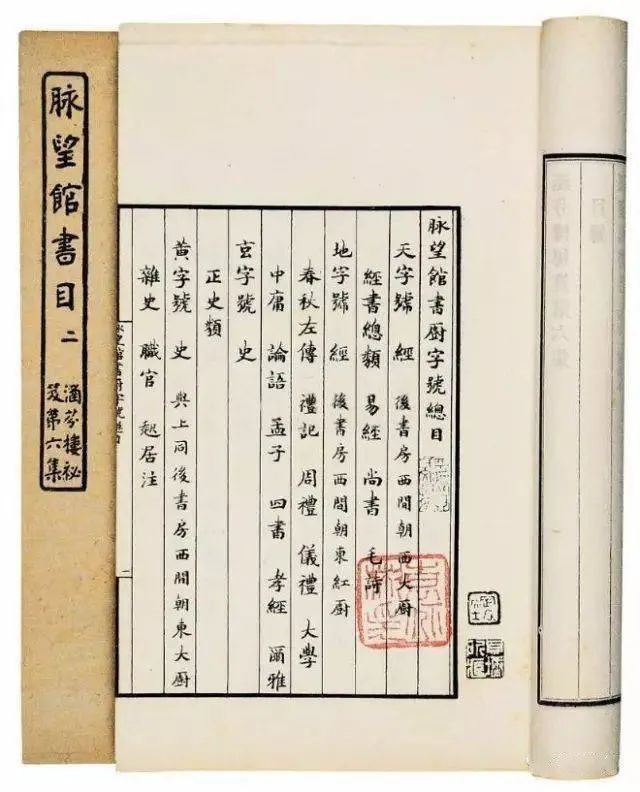 脉望館書目 二
涵芬樓祕
笈第六集
脉望館書廚字號總目
天字號 經 後書房西間朝西大廚
經書總類 易經 尚書 毛詩
地字號 經 後書房西間朝東紅廚
春秋左傳 禮記 周禮 儀禮 大學
中庸 論語 孟子 四書 孝經 爾雅
玄字號 史
正史類
黃字號 史 與上同後書房西間朝東大廚
雜史 職官 起居注